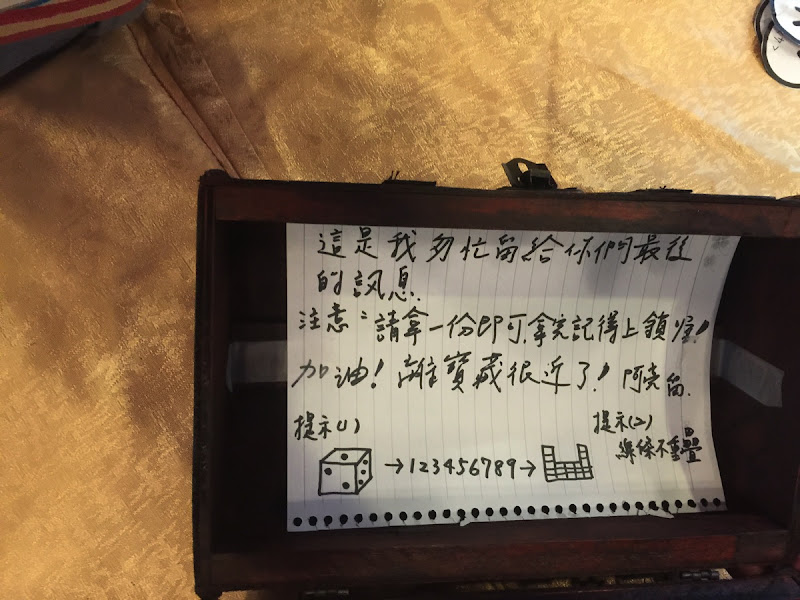 這是我匆忙留給你們最後
的訊息.
注意:請拿一份即可,拿完記得上鎖喔!
加油!離寶藏很近了!阿亮留.
提示(1)
→123456789→
提示(2)
線條不重疊